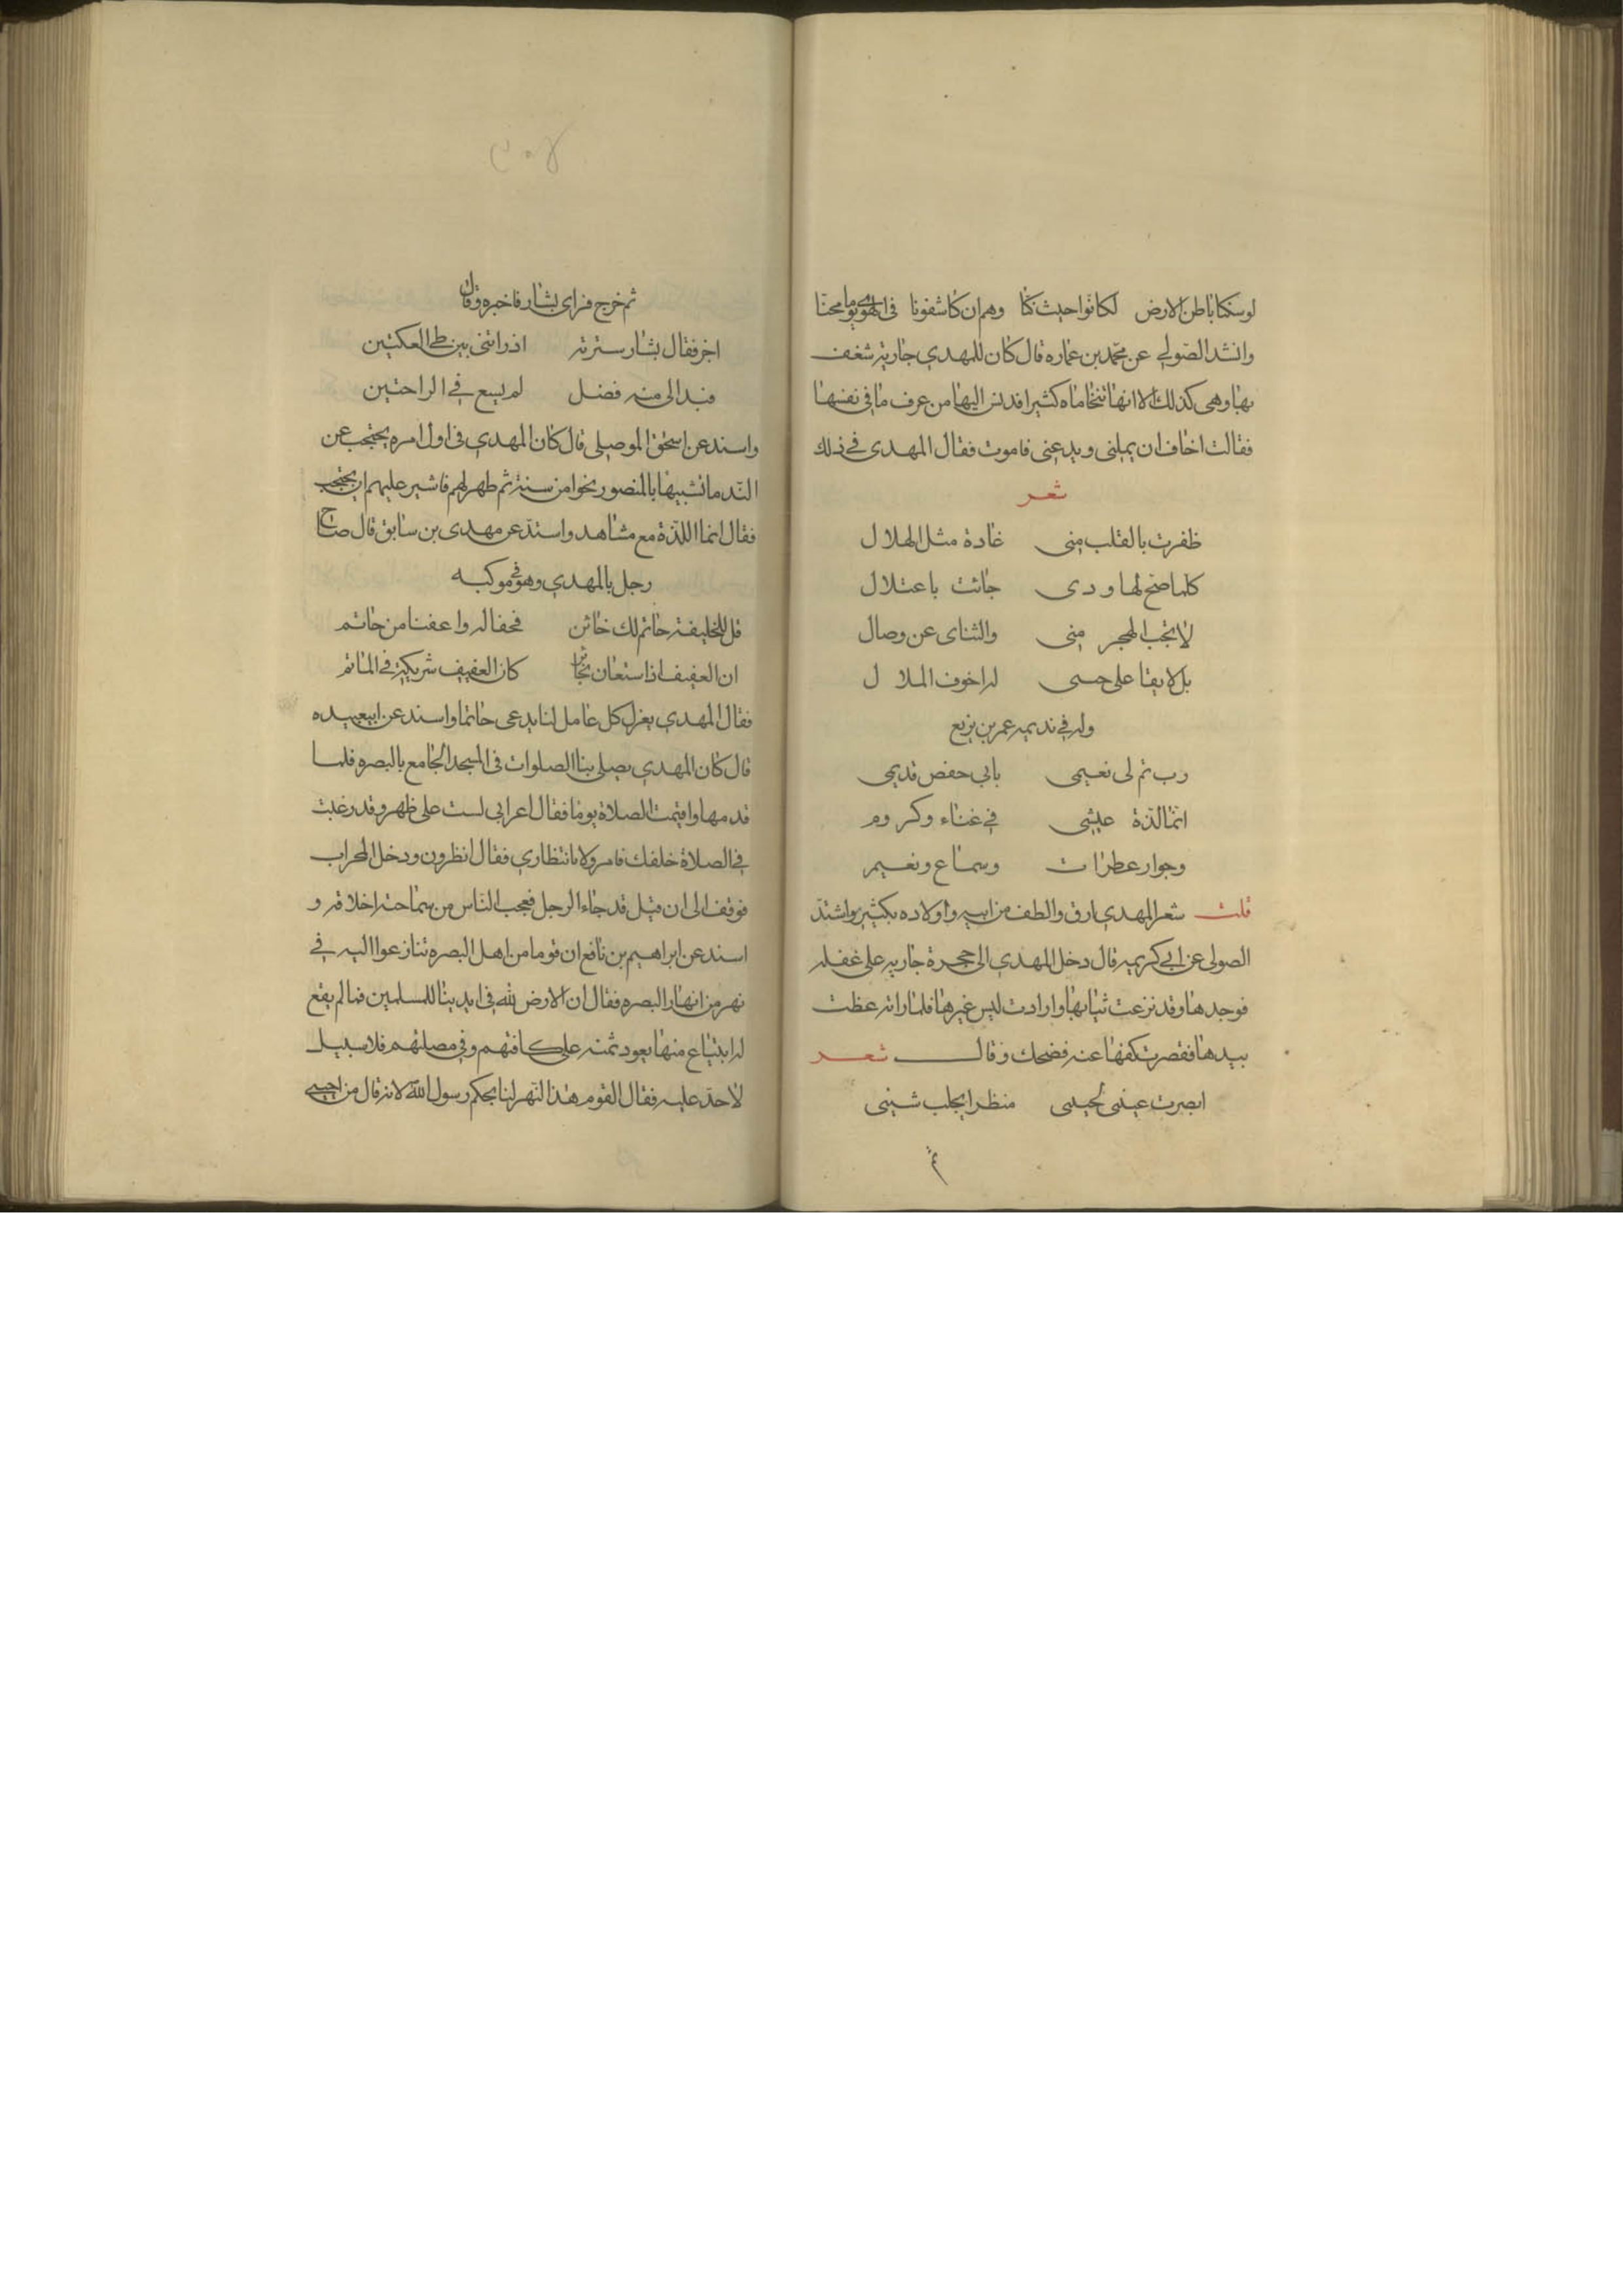 لوسكنا باطن الارض لكانوا حيث كنا وهم ان كاشفونا فى الهوى يوما محنا
وانشد الصولي عن محمد بن عماره قال كان للمهدي جارية شغف
بها وهى كذلك الا انها تتحاماه كثيرا فدس اليها من عرف ما فى نفسها
فقالت اخاف ان يملنى ويدعنى فاموت فقال المهدى فى ذلك
شعر
ظفرت بالقلب منى غادة مثل الهلال
كلما صح لها ودى جائت باعتلال
لا يحب الهجر منى والثناى عن وصال
بل لا يقا على حسى له اخوف الملال
وله في نديمه عمر بن بزيع
رب تم لى نعيمى بابى حفص قديمى
انما لذة عيشى في غناء وكروم
وجوار عطرات وسماع ونعيم
قلت شعر المهدي ارق والطف من ابيه واولاده بكثير واشتد
الصولى عن ابي كريمه قال دخل المهدي الى حجرة جاريه على غفله
فوجدها وقد نزعت ثيابها وارادت لبس غيرها فلما راته غطت
بيدها فقصرت كفها عنه فضحك وقال شعر
ابصرت عينى لحينى منظرا يجلب شينى
ثم
٣٠٨
ثم خرج فراى بشار فاخبره وقال
اجز فقال بشار سترته اذ راتنى بين طى العكتين
فبدا لى منه فضل لم يسع في الراحتين
واسند عن اسحق الموصلى قال كان المهدي فى اول امره يحتجب عن
الندما تشبيها بالمنصور نحوا من سنة ثم ظهر لهم فاشير عليهم ان يحتجب
فقال انما اللذة مع مشاهد واستد عن مهدى بن سابق قال صاح
رجل بالمهدي وهو فى موكبه
قل للخليفة حاتم لك خائن فخف الله واعفنا من حاتم
ان العفيف اذا ستعان بخائن كان العفيف شريكه فى الماثم
فقال المهدي يعزل كل عامل لنا يدعى حاتما واسند عن ابى عبيده
قال كان المهدي يصلى بنا الصلوات فى المسجد الجامع بالبصره فلما
قدمها واقيمت الصلاة يوما فقال اعرابى لست على ظهر وقد رغبت
في الصلاة خلفك فامر ولا بانتظاري فقال انظرون ودخل المحراب
فوقف الى ان قيل قد جاء الرجل فعجب الناس من سماحة اخلاقه و
اسند عن ابراهيم بن نافع ان قوما من اهل البصره تنازعوا اليه في
نهر من انهار البصره فقال ان الارض لله فى ايدينا للمسلمين فما لم يقع
له ابتياع منها يعود ثمنه على كافتهم وفي مصلتهم فلا سبيل
لاحد عليه فقال القوم هذا النهر لنا بحكم رسول الله لانه قال من احيى